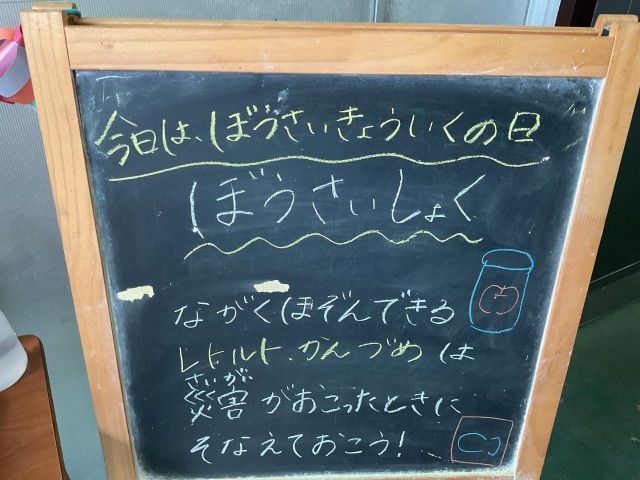 今日は、ぼうさいきょういくの日
ぼうさいしょく
ながくほぞんできる
レトルト、かんづめは
さいがい
災害がおこったときに
そなえておこう!